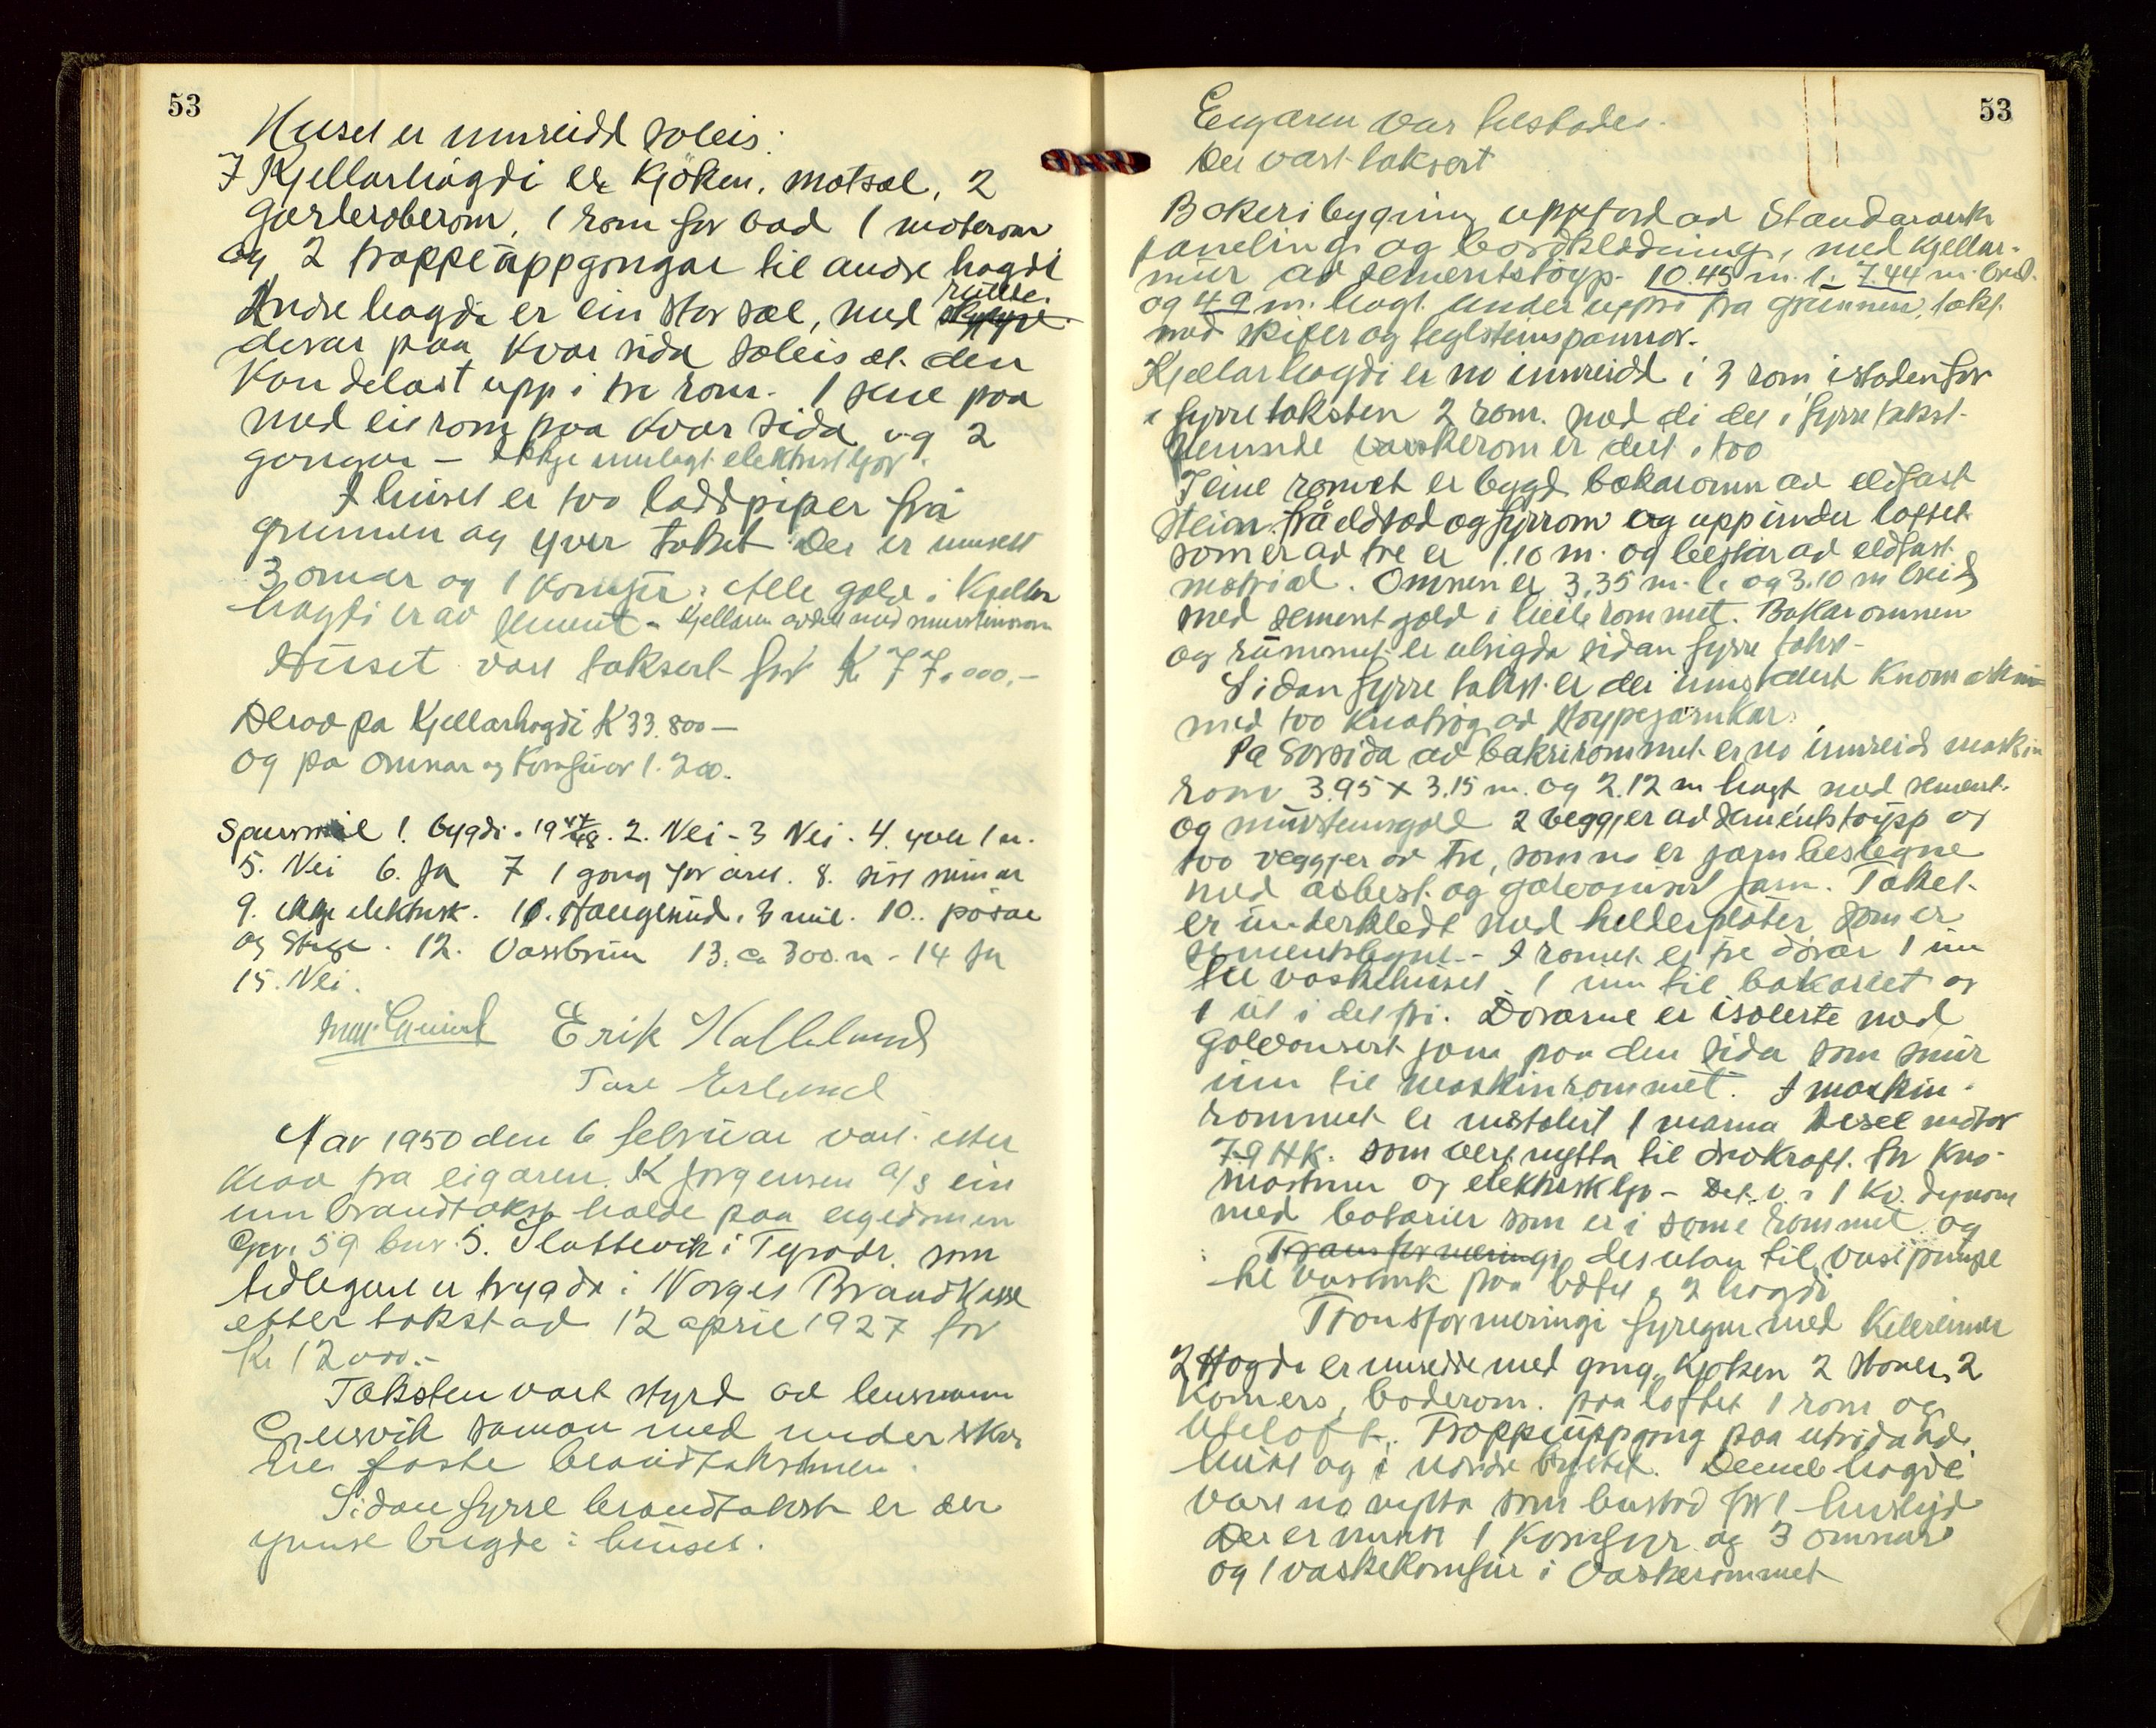 53
Huset er innreidd soleis:
I Kjellarhøgdi er Kjöken, matsal, 2
garderoberom, 1 rom for bad 1 møterom
og 2 trappeuppgongar til andre høgdi
Andre høgdi er ein stor sal, med rulle
dørar paa kvar sida soleis at den
kan delast upp i tre rom. 1 sene paa
med eit rom paa kvar sida og 2
gongar — Ikkje innlagt elektrisk ljos.
I huset er tvo laddpiper frå
grunnen og yver taket. Der er innsett
3 omnar og 1 komfyr. Alle golv i Kjellar
høgdi er av sement -
Huset vart taksert for Kr 77.000.-
Derav pa Kjellarhøgdi K 33.800 —
og pa omnar og Komfyrar 1.200.
Spursmål 1. bygdi. 19 47/48. 2. Nei - 3 Nei. 4. yver 1 m.
5. Nei 6. Ja 7 1 gong for året. 8.
9. ikkje elektrisk. 11. Haugesund. 3 mil. 10.. pösar
og Stige. 12. Vassbrun 13. ca 300. m - 14 Ja
15. Nei.
Erik Hallelund
År 1950 den 6 februar vart etter
krav fra eigaren K Jørgensen A/S ein
ein brandtakst halde paa eigedomen
Gnr. 59 bnr. 5. Slattevik i Tysvær. som
tidlegare er trygda i Norges Brandkasse
etter takst av 12 april 1927 for
Kr 12000.-
Taksten vart styrd av lensmann
Gursvik saman med underskriv
ne faste brandtakstmen.
Sidan fyrre brandtakst er der
ymse brigde i huset.
53
Eigaren var tilstades.
Der vart taksert
Bakeribygning uppførd av Standarverk
paneling og bordklædning, med kjellar-
mur av sementstøyp. 10.45 m. l. 7.44 m. breid.
og 4.9 m. høgt under uppi fra grunnen, tækt
med skifer og teglsteinspannor.
Kjellarhøgdi er no innreidd i 3 rom istadenfor
i fyrre taksten 2 rom. med di det i fyrre takst
nemnde vaskerom er delt i tvo
I eine romet er bygd bakaromn av eldfast
Stein. frå eldstad og fyrrom og upp under loftet
som er av tre er 1.10 m. og består av eldfast
matrial. Omnen er 3.35 m. l. og 3.10 m breid
med sement golv i heile rommet. Bakaromnen
og rummet er utvigda sidan fyrre takst -
Sidan fyrre takst er der innstalert Knomaskin
med tvo knatrog av støypejarnkar.
På sørsida av bakrirommet er no innreid maskin
rom 3.95 x 3.15 m. og 2.12 m høgt med sement.
og mursteinsgolv 2 veggjer av sementstøyp og
tvo veggjer av tre, som no er jarnbeslegne
med asbest og galvanisert jarn. Taket
er underkledt med helderplater som er
sementslegne. - I romet er tre dörar 1 inn
til vaskehuset 1 inn til bakariet og
1 ut i det fri. Dörarne er isolerte med
galvanisert jarn paa den sida som snur
inn til maskinrommet. I maskin-
rommet er instalert 1 marna Desel motor
7-9 HK. som vert nytta til drivkraft for Kno-
maskinen og elektrisk ljos - Det. er 1 Kv. dynamo
med batarier som er i same rommet og
Transformeringi desutan til vasspumpe
til vasstank paa loftet i 2 høgdi
Transformeringi fyregår med Kileremer
2 Høgdi er innreidd med gong, Kjøken 2 stover, 2
Kamers, baderom. paa loftet 1 rom og
Uteloft. Trappeuppgong paa utsida av
huset og i nordre bislet. Denne høgdi
vart no nytta som bustad for 1 huslyd
Der er innsett 1 Komfyr og 3 omnar
og 1 vaskekomfyr i Vaskerommet